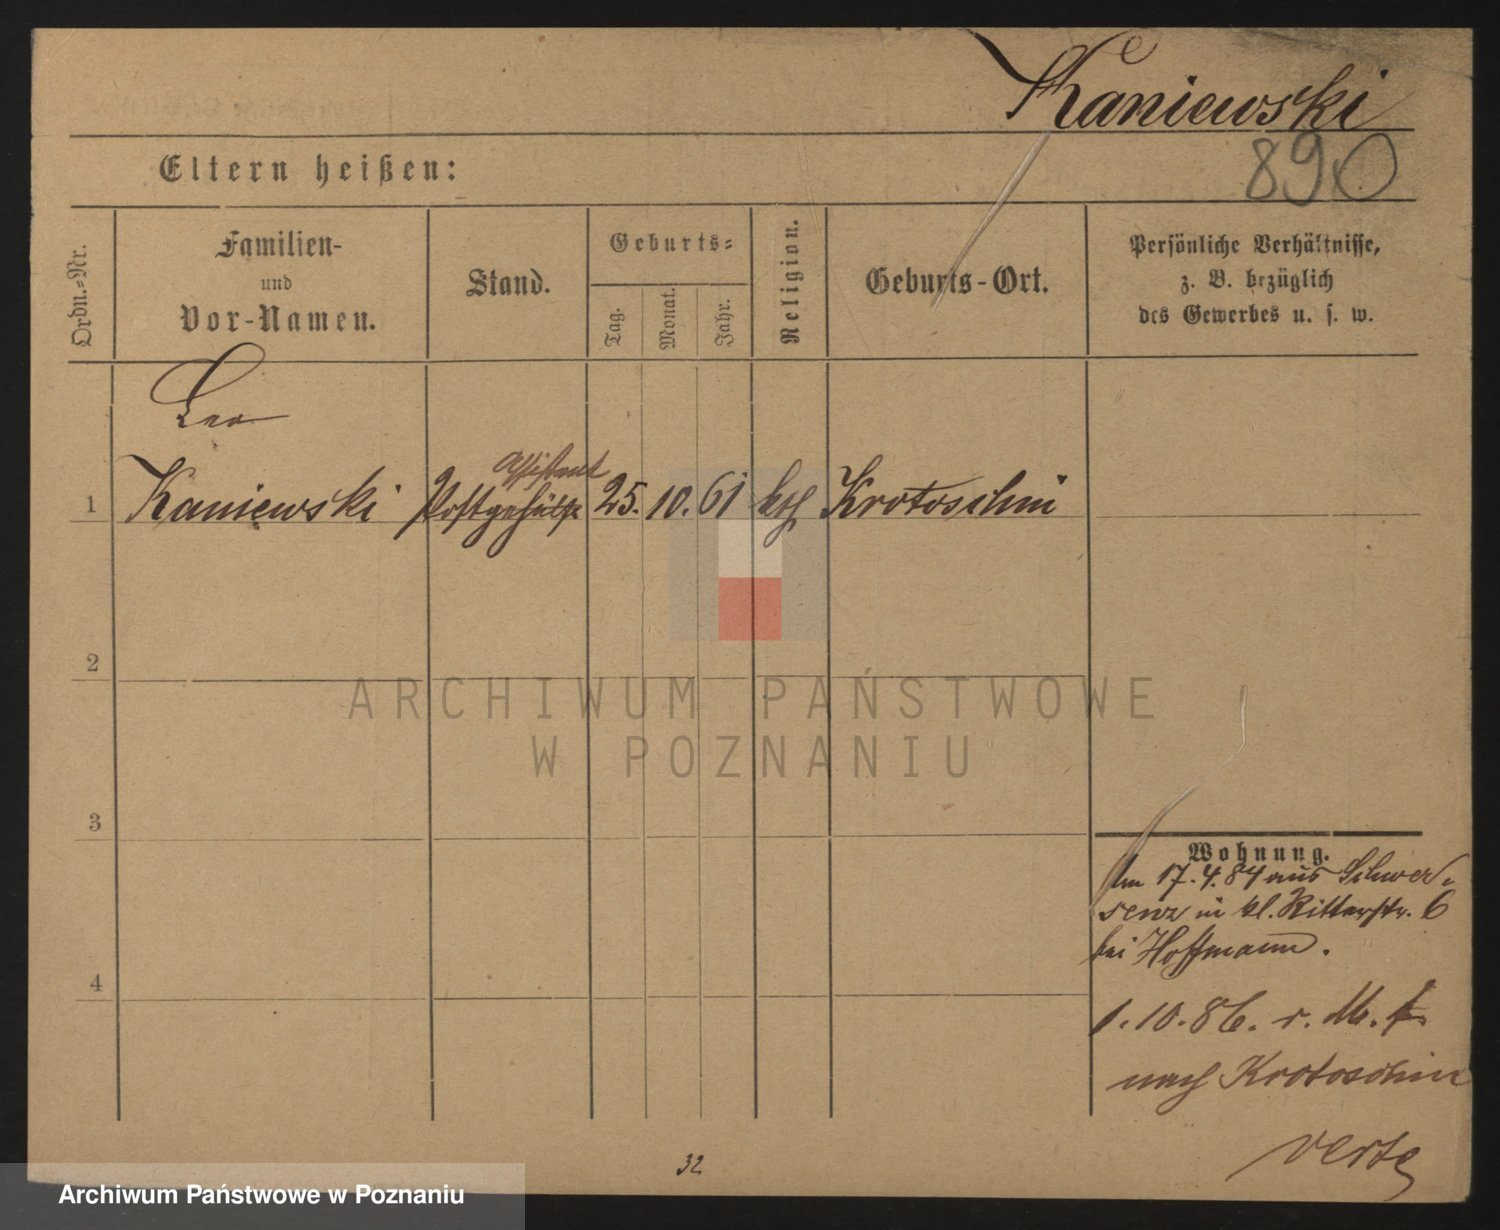 Kaniewski
890
Eltern heißen:
Ordn.=Nr.
Familien-
und
Vor-Namen.
Stand.
Geburts=
Tag.
Monat.
Jahr.
Religion.
Geburts-Ort.
Persönliche Verhältnisse,
z. B. bezüglich
des Gewerbes u. s. w.
Leo
Assistent
1 Kaniewski Postgehülfe 25. 10. 61 kth Krotoschin
2
ARCHIWUM PAŃSTWOWE
W POZNANIU
3
Wohnung.
Am 17.4.84 aus Schwer-
senz in kl. Ritterstr. 6
bei Hoffmann.
4
1.10.86. r. M.
nach Krotoschin
verte
32
Archiwum Państwowe w Poznaniu